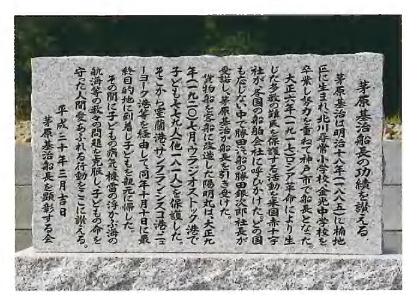 茅原基治船長の功績を讃える
茅原基治は明治十八年(一八八五)に楠地
区に生まれ北川尋常小学校、金光中学校を
卒業し努力を重ねて神戸市で船長となった
大正六年(一九一七)ロシア革命により生
じた多数の難民を保護する活動を米国赤十字
社が各国の船舶会社に呼びかけたがどの国
も応じない中で勝田汽船勝田銀次郎社長が
受諾し茅原基治が船長を引き受けた。
貨物船を客船に改造した陽明丸は、大正九
年(一九二〇)七月ウラジオストック港で
子ども七七六人他一八一人を保護した。
そこから室蘭港サンフランシスコ港、ニュ
ーヨーク港等を経由して同年十月十日に最
終目的地に到着し子どもを親元に帰した。
その間に子どもの病死、機雷の浮かぶ海の
航海等の数々の問題を克服し子どもの命を
守った人間愛あふれる行動をここに讃える
平成三十年三月吉日
茅原基治船長を顕彰する会